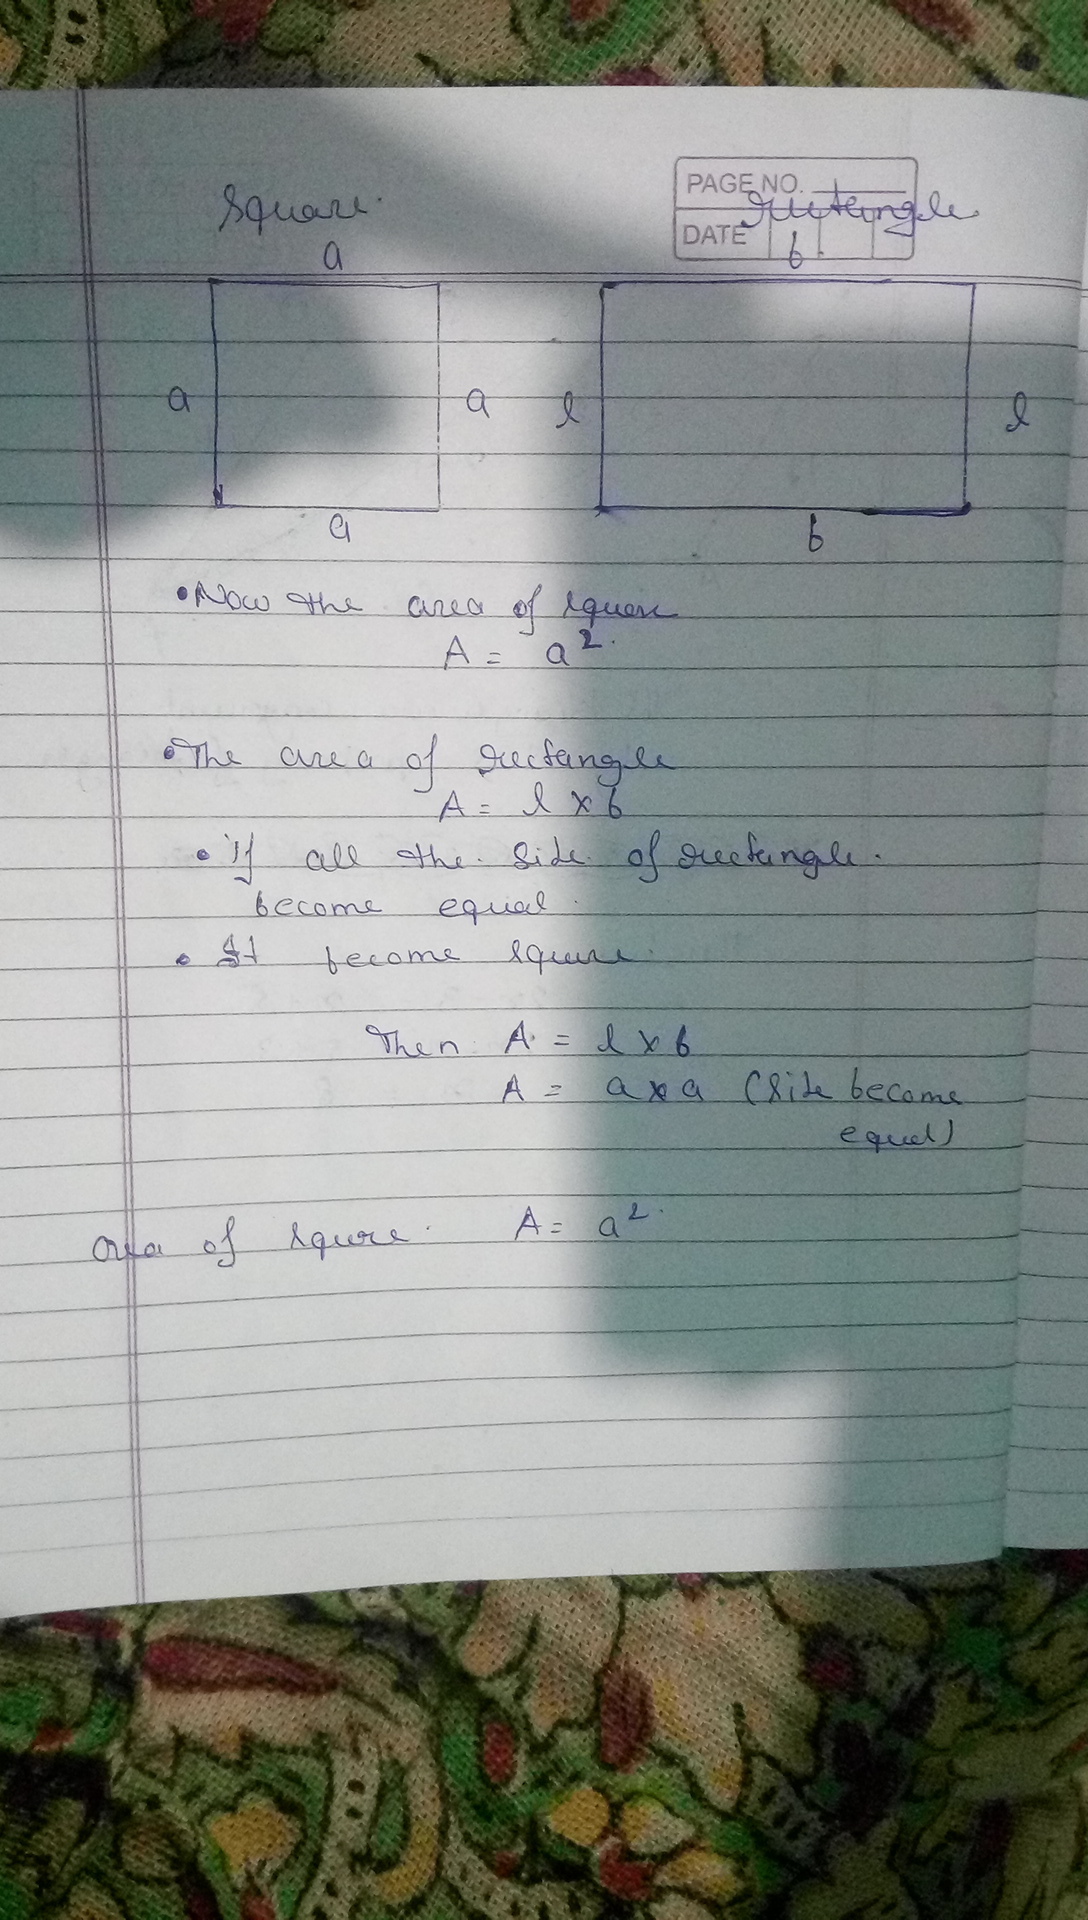 Square.
PAGE NO.
rectangle
DATE
a
b
a
a
l
l
a
b
• Now the area of square
A = a².
• The area of rectangle
A = l × b
• if all the side of rectangle.
become equal.
• It become square.
Then A = l × b
A = a × a (Side become
equal)
area of square. A = a².